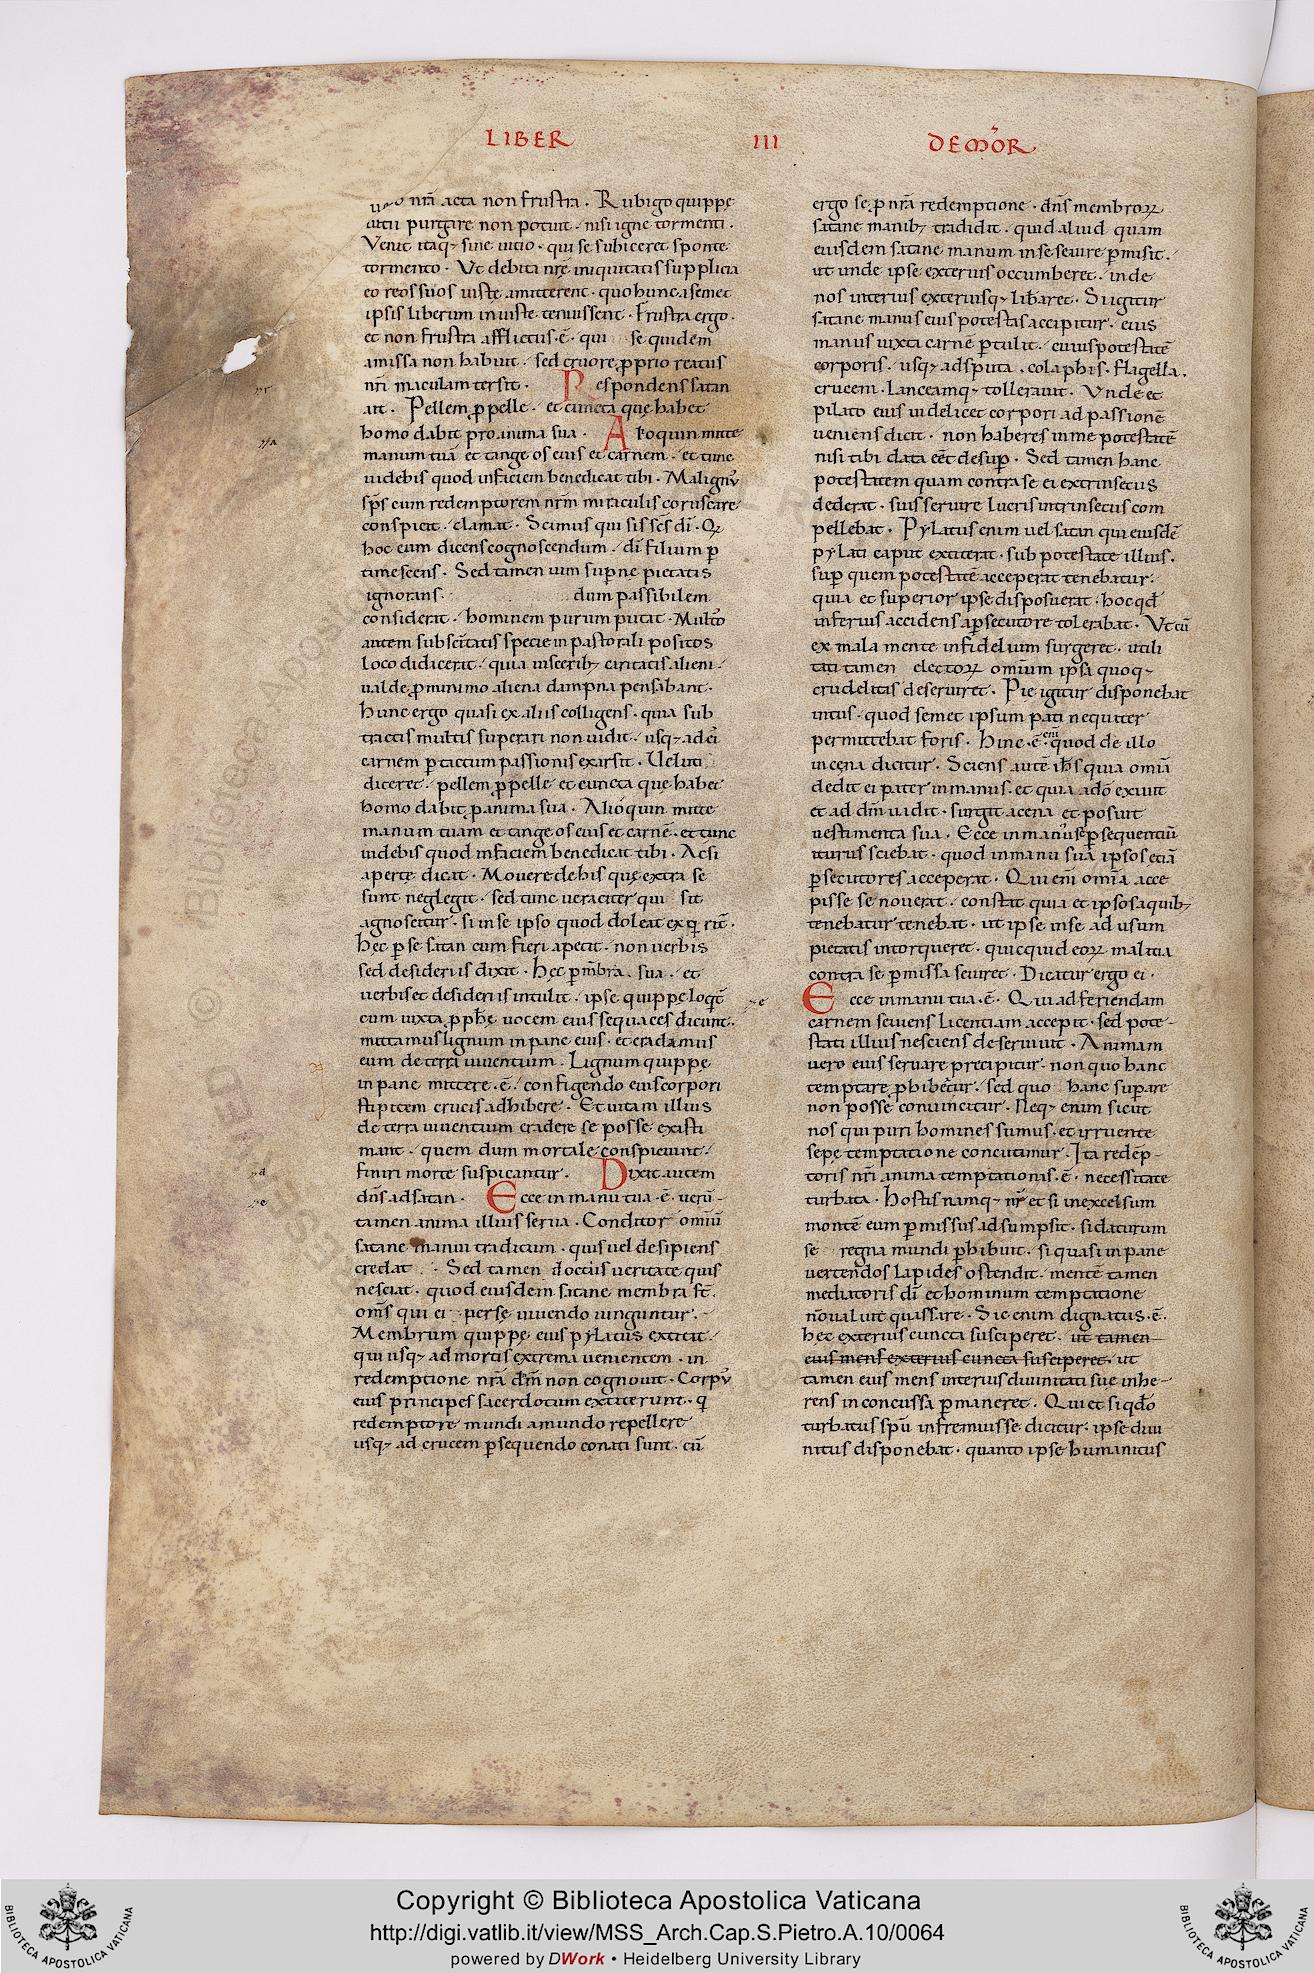 LIBER III DEMOR̄
nr̄a acta non frustra. Rubigo quippę
uitii purgare non potuit. nisi igne tormenti.
Venit itaq; sine uitio. qui se subiceret sponte
tormento. Vt debita nrę̄ iniquitatis supplicia
eo reos suos iuste amitterent. quo hunc a semet
ipsis liberum iniuste tenuissent. Frustra ergo.
et non frustra afflictus .ē. qui se quidem
amissa non habuit. sed cruore p̱prio reatus
nr̄i maculam tersit. Respondens satan
ait. Pellem p̱ pelle. et cuncta quę habet
homo dabit pro anima sua. Alioquin mitte
manum tuā et tange os eius et carnem. et tunc
uidebis quod in faciem benedicat tibi. Malignꝰ
sp̄s eum redemptorem nr̄m miraculis coruscare
conspicit. clamat. Scimus qui sis sc̄s dī. Qꝫ
hoc eum dicens cognoscendum. dī filium ꝑ
timescens. Sed tamen uim suꝑne pietatis
ignorans. dum passibilem
considerat. hominem purum putat. Multo
autem sub sc̄itatis specie in pastorali positos
loco didicerat. quia uiscerib; caritatis alieni.
ualde ꝓ minimo aliena dampna pensabant.
Hunc ergo quasi ex aliis colligens. quia sub
tractis multis superari non uidit. usq; ad ei
carnem ꝑ tactum passionis exarsit. Veluti
diceret. pellem ꝓ pelle et cuncta quę habet
homo dabit ꝓ anima sua. Alioquin mitte
manum tuam et tange os eius et carnē. et tunc
uidebis quod in faciem benedicat tibi. Acsi
aperte dicat. Moueri de his quę extra se
sunt neglegit. sed tunc ueraciter qui sit
agnoscetur. si in se ipso quod doleat exꝑrit̄.
Hęc ꝑ se satan cum fieri apetit. non uerbis
sed desideriis dixit. Hęc ꝑ mb̄ra sua. et
uerbis et desideriis intulit. ipse quippę loqt̄
cum iuxta ꝓph̄ę uocem eius sequaces dicunt.
mittamus lignum in pane eius. et eradamus
eum de terra uiuentium. Lignum quippę
in pane mittere .ē. configendo eius corpori
stipitem crucis adhibere. Et uitam illius
de terra uiuentium eradere se posse existi
mant. quem dum mortale conspiciunt.
finiri morte suspicantur. Dixit autem
dn̄s ad satan. Ecce in manu tua .ē. uerū-
tamen anima illius serua. Conditor omiū
satane manui traditum. quis uel desipiens
credat. Sed tamen doctus ueritate quis
nesciat. quod eiusdem satane membra st̄.
oms̄ qui ei peruersę uiuendo iunguntur.
Membrum quippę eius pylatus extitit.
qui usq; ad mortis extrema uenientem. in
redemptione nr̄a dn̄m non cognouit. Corpꝰ
eius principes sacerdotum extiterunt. q
redemptore mundi a mundo repellere
usq; ad crucem ꝑsequendo conati sunt. cū
ergo se ꝓ nr̄a redemptione. dn̄s membroꝝ
satane manib; tradidit. quid aliud quam
eiusdem satane manum in se seuire ꝑmisit.
ut unde ipse exterius occumberet. inde
nos interius exteriusq; lib̄aret. Si igitur
satane manus eius potestas accipitur. eius
manus iuxta carnē ꝑtulit. cuius potestatē
corporis. usq; ad sputa. colaphis. flagella.
crucem. Lanceamq; tollerauit. Vnde et
pilato eius uidelicet corpori ad passionē
ueniens dicit. non haberes in me potestatē
nisi tibi data eēt desuꝑ. Sed tamen hanc
potestatem quam contra se ei extrinsecus
dederat. suis seruire lucris intrinsecus com
pellebat. Pylatus enim uel satan qui eiusdē
pylati caput extiterat. sub potestate illius.
suꝑ quem potestatē acceperat tenebatur.
quia et superior ipse disposuerat. hoc qd̄
inferius accidens a ꝑsecutore tolerabat. Vt cū
ex mala mente infidelium surgeret. utili
tati tamen electoꝝ omium ipsa quoq;
crudelitas deseruiret. Pie igitur disponebat
intus. quod semet ipsum pati nequiter
permittebat foris. Hinc .ē. eni quod de illo
in cena dicitur. Sciens autē ih̄s quia omia
dedit ei pater in manus. et quia a dō exiuit
et ad dm̄ uadit. surgit a cena et posuit
uestimenta sua. Ecce in manus ꝑsequentiū
iturus sciebat. quod in manu suā ipsos etiā
ꝑsecutores acceperat. Qui eni omia acce
pisse se nouerat. constat quia et ipsos a quib;
tenebatur tenebat. ut ipse in se ad usum
pietatis intorqueret. quicquid eoꝝ malitia
contra se ꝑmissa seuiret. Dicatur ergo ei.
Ecce in manu tua .ē. Qui ad feriendam
carnem seuiens licentiam accepit. sed pote-
stati illius nesciens deseruiuit. Animam
uero eius seruare precipitur. non quo hanc
temptare ꝓhibetur. sed quo hanc suꝑare
non posse conuincitur. Neq; enim sicut
nos qui puri homines sumus. et irruente
sepę temptatione concutimur. Ita redēp-
toris nr̄i anima temptationis .ē. necessitate
turbata. Hostis namq; nr̄ et si in excelsum
montē eum ꝑmissus adsumpsit. si daturum
se regna mundi ꝑhibuit. si quasi in pane
uertendos lapides ostendit. mentē tamen
mediatoris dī et hominum temptatione
nō ualuit quassare. Sic enim dignatus .ē.
hęc exterius cuncta susciperet. ut tamen
eius mens exterius cuncta susciperet. ut
tamen eius mens interius diuinitati sue inhe-
rens inconcussa ꝑmaneret. Qui et si qdō
turbatus spū infremuisse dicitur. ipse diui
nitus disponebat. quanto ipse humanitus
© Biblioteca Apostolica Vaticana
Copyright © Biblioteca Apostolica Vaticana
http://digi.vatlib.it/view/MSS_Arch.Cap.S.Pietro.A.10/0064
powered by DWork • Heidelberg University Library
BIBLIOTECA APOSTOLICA VATICANA
BIBLIOTECA APOSTOLICA VATICANA